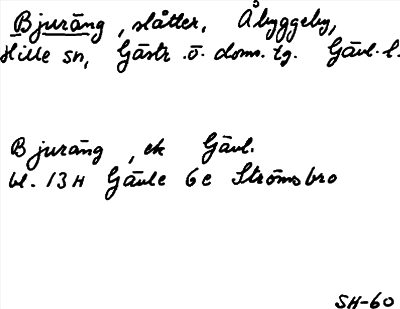 Bjuräng, slåtter, Åbyggeby,
Hille sn, Gästr. ö. doms. tg. Gävl. l.
Bjuräng, ek Gävl.
bl. 13H Gävle 6c Strömsbro
SH-60